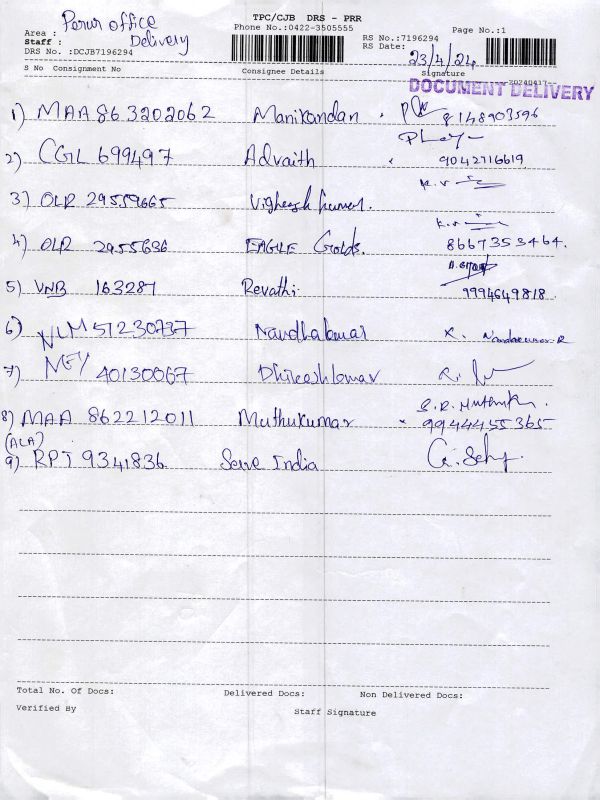 TPC/CJB DRS - PRR
Perur office
Area :
Phone No.:0422-3505555
Page No.:1
Staff :
Delivery
RS No.:7196294
RS Date:
23/4/24
DRS No. :DCJB7196294
S No Consignment No
Consignee Details
Signature
20240417
DOCUMENT DELIVERY
1) MAA 863202062 Manikandan 8148903596
2) CGL 699497 Advaith 9042716619
3) OLR 29559665
4) OLR 2955636 EAGLE Golds. 8667353464.
5) VNB 163287 Revathi 9994649818
6) NLM 51230737 Nandhakumar
7) NEY 40130067
8) MAA 862212011 Muthukumar 9944455365
(ALA)
9) RPJ 9341836 Serve India
Total No. Of Docs:
Delivered Docs:
Non Delivered Docs:
Verified By
Staff Signature